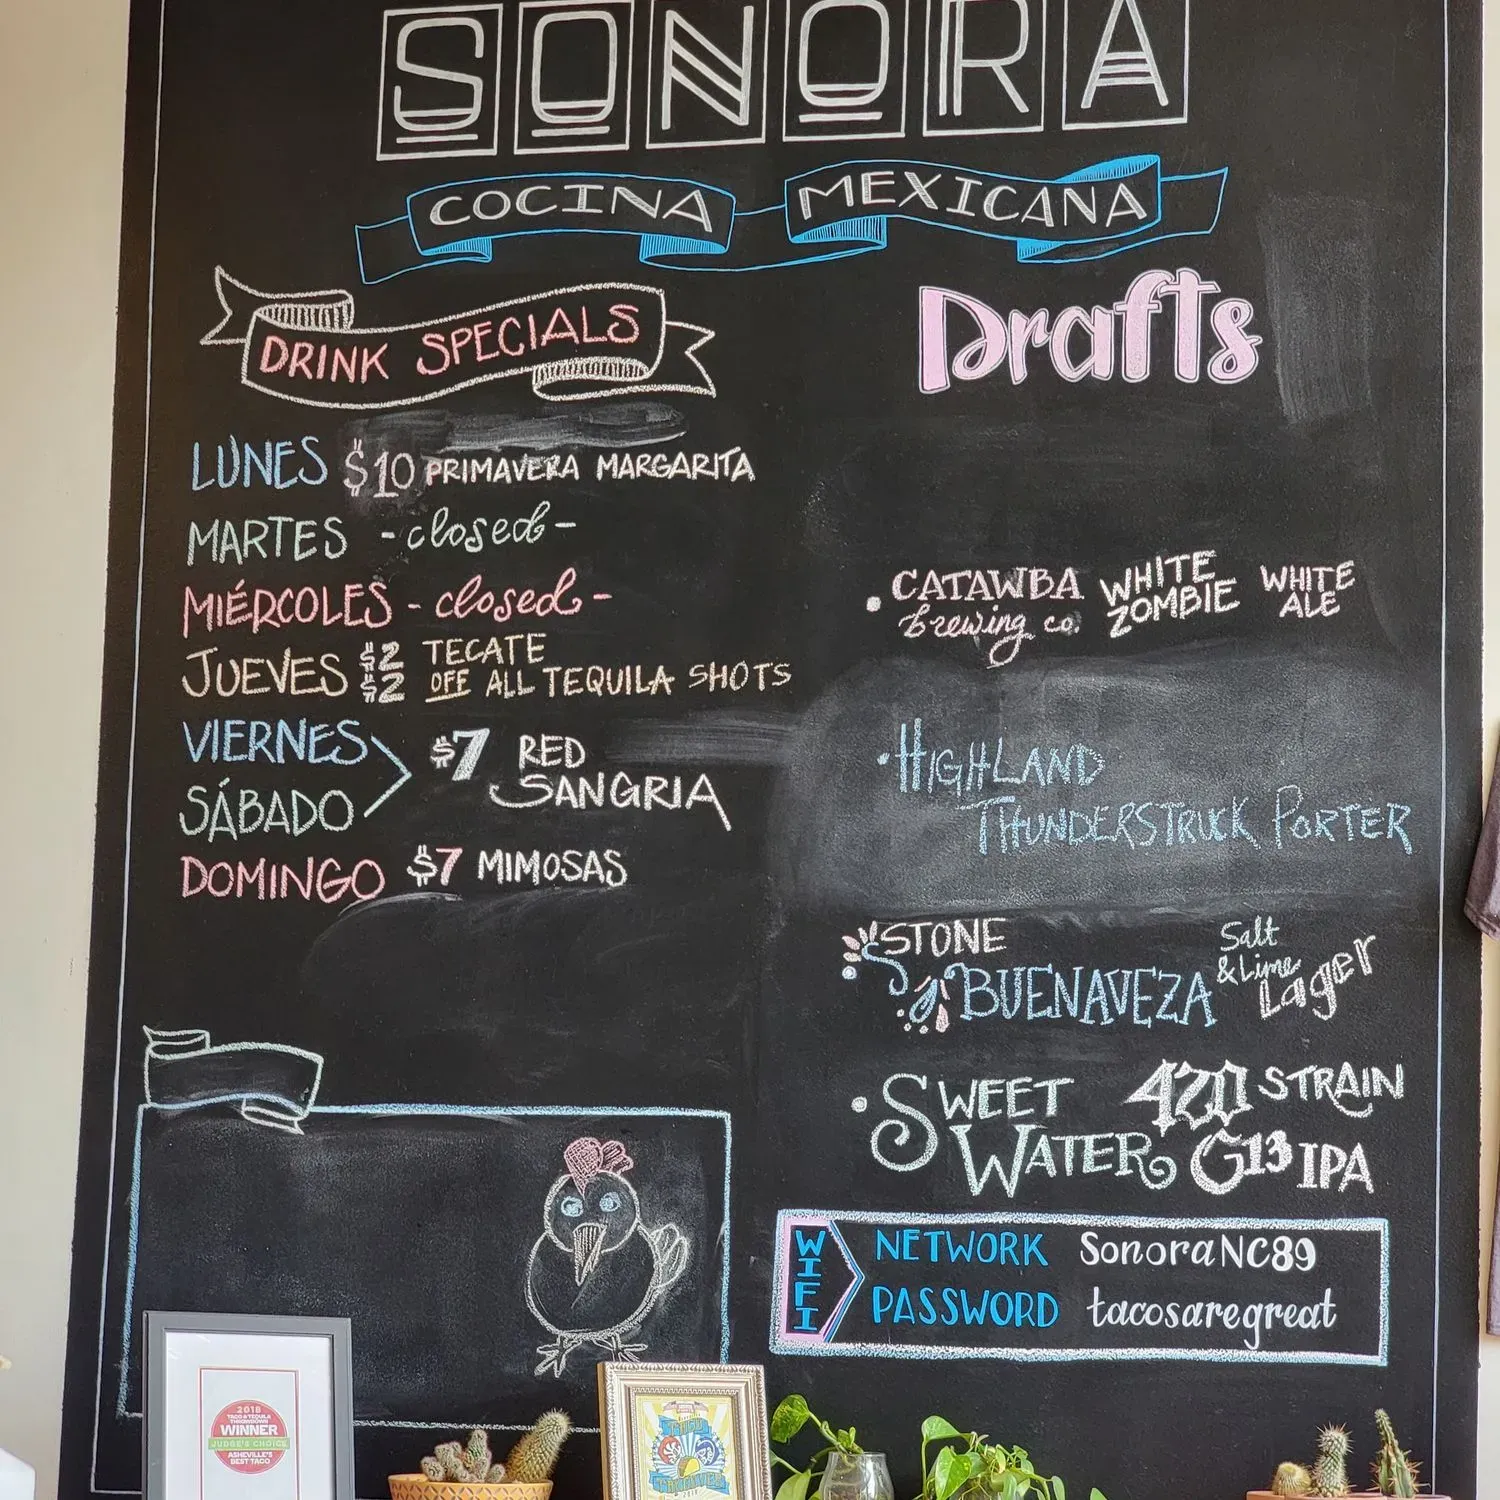 SONORA
COCINA MEXICANA
DRINK SPECIALS
LUNES $10 PRIMAVERA MARGARITA
MARTES -closed-
MIÉRCOLES -closed-
JUEVES $2 TECATE
$2 OFF ALL TEQUILA SHOTS
VIERNES
SÁBADO
$7 RED
SANGRIA
DOMINGO $7 MIMOSAS
Drafts
• CATAWBA WHITE WHITE
brewing co. ZOMBIE ALE
• HIGHLAND
THUNDERSTRUCK PORTER
STONE
BUENAVEZA
Salt
& Lime
Lager
• SWEET 420 STRAIN
WATER G13 IPA
WIFI
NETWORK SonoraNC89
PASSWORD tacosaregreat
2018
TACO & TEQUILA
THROWDOWN
WINNER
JUDGE'S CHOICE
ASHEVILLE'S
BEST TACO